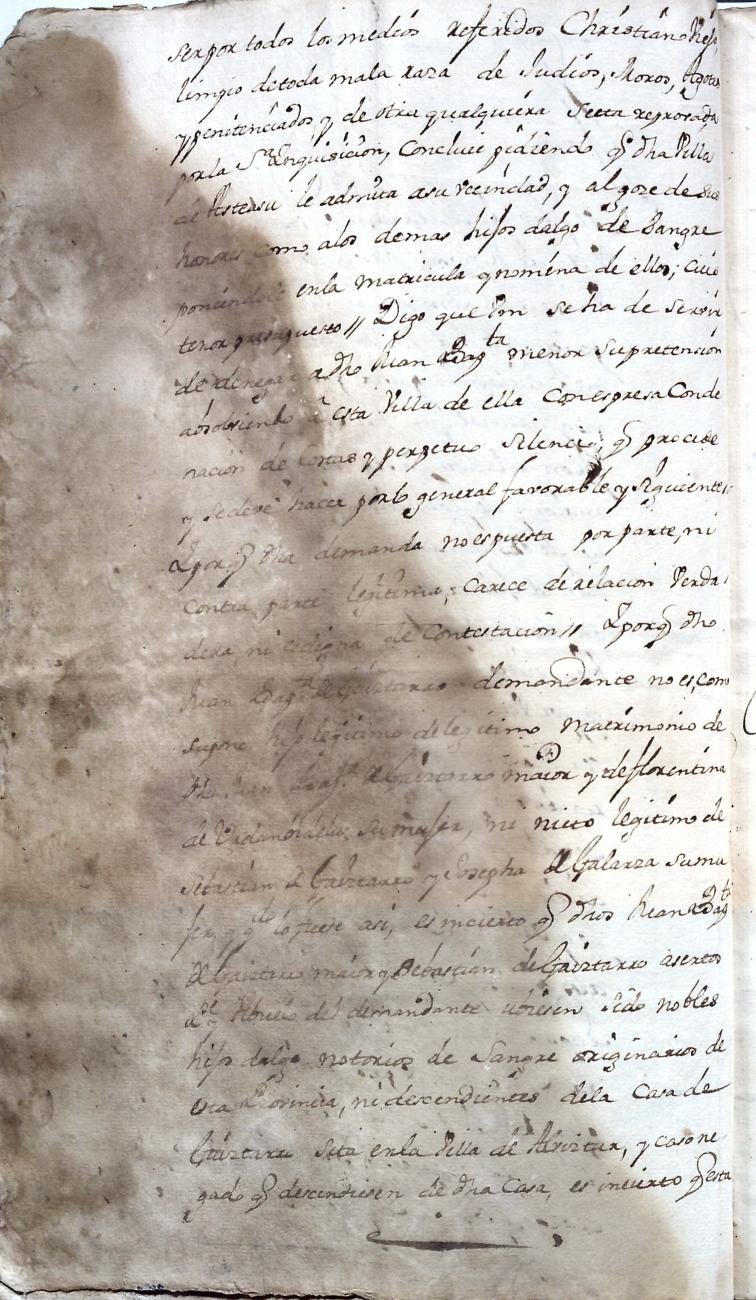 ser por todos los medios referidos Christiano viejo
limpio de toda mala raza de Judios, Moros, Agotes
y penitenciados, y de otra qualquiera secta reprovada
por la Sta Inquisicion, Concluie pidiendo q dha Villa
de Asteasu le admita a su vecindad, y al goze de sus
honores como a los demas hijos dalgo de sangre
poniendole en la matricula y nomina de ellos; cuio
tenor presupuesto // Digo que Vm se ha de servir
de denegar a dho Juan Bapta menor su pretension
absolviendo a esta Villa de ella con espresa Conde
nacion de Costas y perpetuo silencio q procede
y se deve hacer por lo general favorable y siguiente
Lo porq dha demanda no es puesta por parte, ni
contra parte legitima, Carece de relacion verda
dera ni es digna de Contestacion // Lo porq dho
Juan Bapta de Gaiztarro demandante no es, como
supone hijo legitimo de legitimo matrimonio de
dho Juan Bapta de Gaiztarro maior y de florentina
de su muger, ni nieto legitimo de
Sebastian de Gaiztarro y Josepha de Galarza su mu
ger, y qdo lo fuese asi, es incierto q dhos Juan Bapta
de Gaiztarro maior y Sebastian de Gaiztarro asertos
pe y Abuelo del demandante ubiesen sido nobles
hijos dalgo notorios de Sangre originarios de
esta Provincia, ni descendientes de la Casa de
Gaiztarro sita en la Villa de Alviztur, y caso ne
gado q descendiesen de dha Casa, es incierto q esta